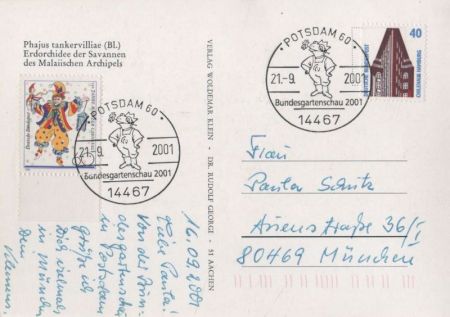 Phajus tankervilliae (Bl.)
Erdorchidee der Savannen
des Malaiischen Archipels
VERLAG WOLDEMAR KLEIN · DR. RUDOLF GEORGI · 51 AACHEN
POTSDAM 60
21.-9. 2001
Bundesgartenschau 2001
14467
POTSDAM 60
21.-9. 2001
Bundesgartenschau 2001
14467
40
DEUTSCHE BUNDESPOST
CHILEHAUS HAMBURG
16.09.2001
Liebe Paula!
Von der Bun-
desgartenschau
in Potsdam
grüße ich
Dich vielmals
in München
Dein
Klemens.
Frau
Paula Schütz
Straße 36/I
80469 München